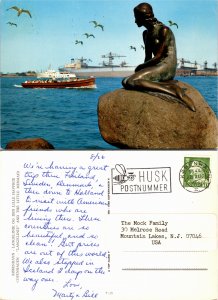 5/26
We're having a great
trip thru Finland,
Sweden, Denmark, &
then drive to Holland
to visit with American
friends who are
living there. These
countries are so
beautiful, and so
clean!! But prices
are out of this world.
We also stopped in
Iceland 2 days on the
way over.
Love,
Marty & Bill
HUSK
POSTNUMMER
The Mock Family
30 Melrose Road
Mountain Lakes, N.J. 07046
USA